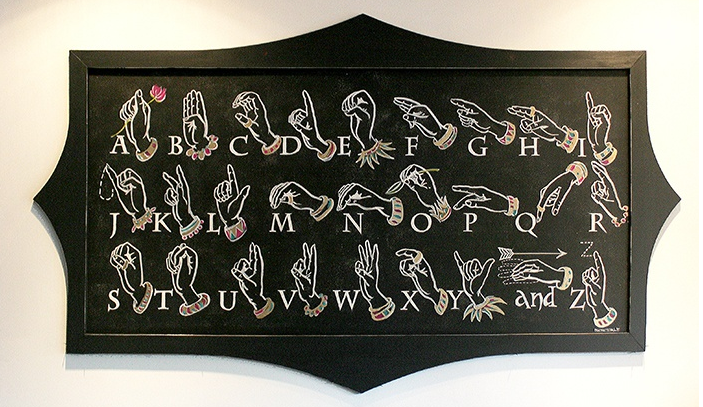 A B C D E F G H I
J K L M N O P Q R
S T U V W X Y and Z